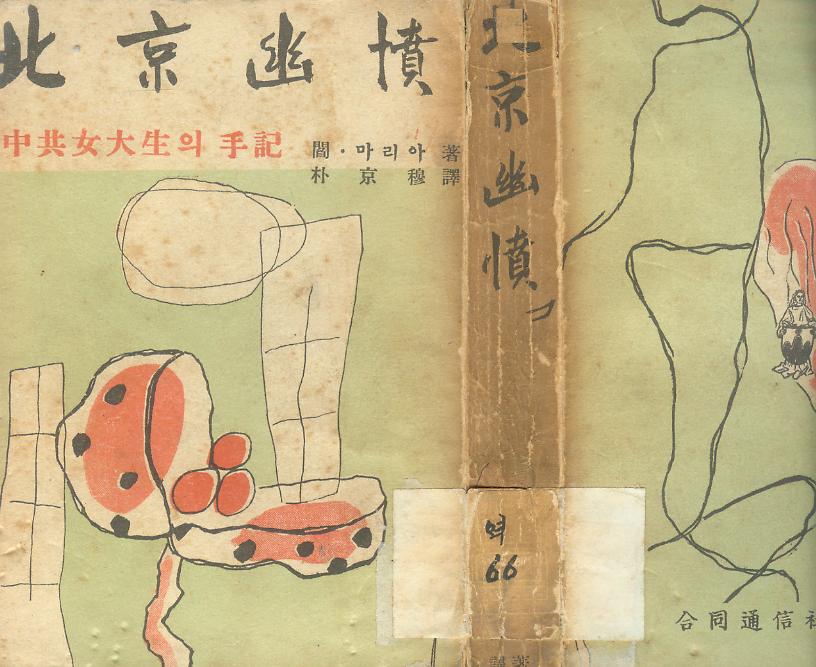 北京幽憤
中共女大生의 手記
閻·마리아 著
朴京穆 譯
北京幽憤
역
66
著
譯
合同通信社